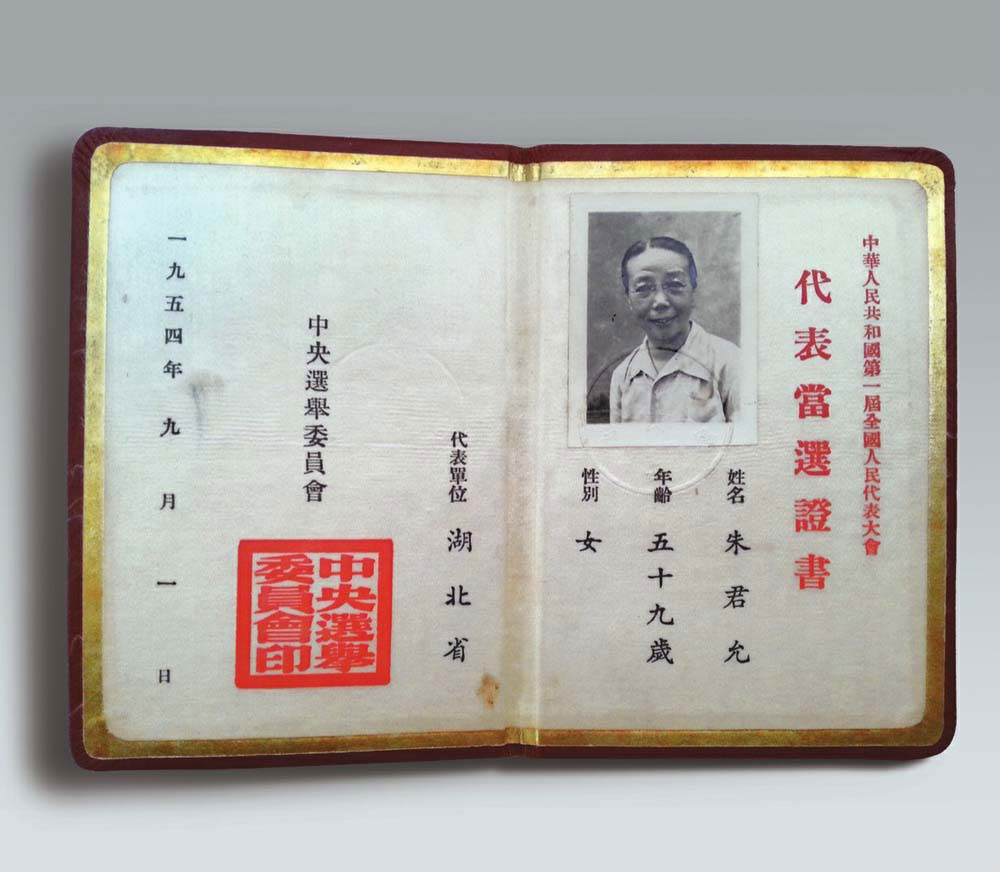 中華人民共和國第一屆全國人民代表大會
代表當選證書
姓名 朱君允
年齡 五十九歲
性別 女
代表單位 湖北省
中央選舉委員會
中央選舉
委員會印
一九五四年九月一日